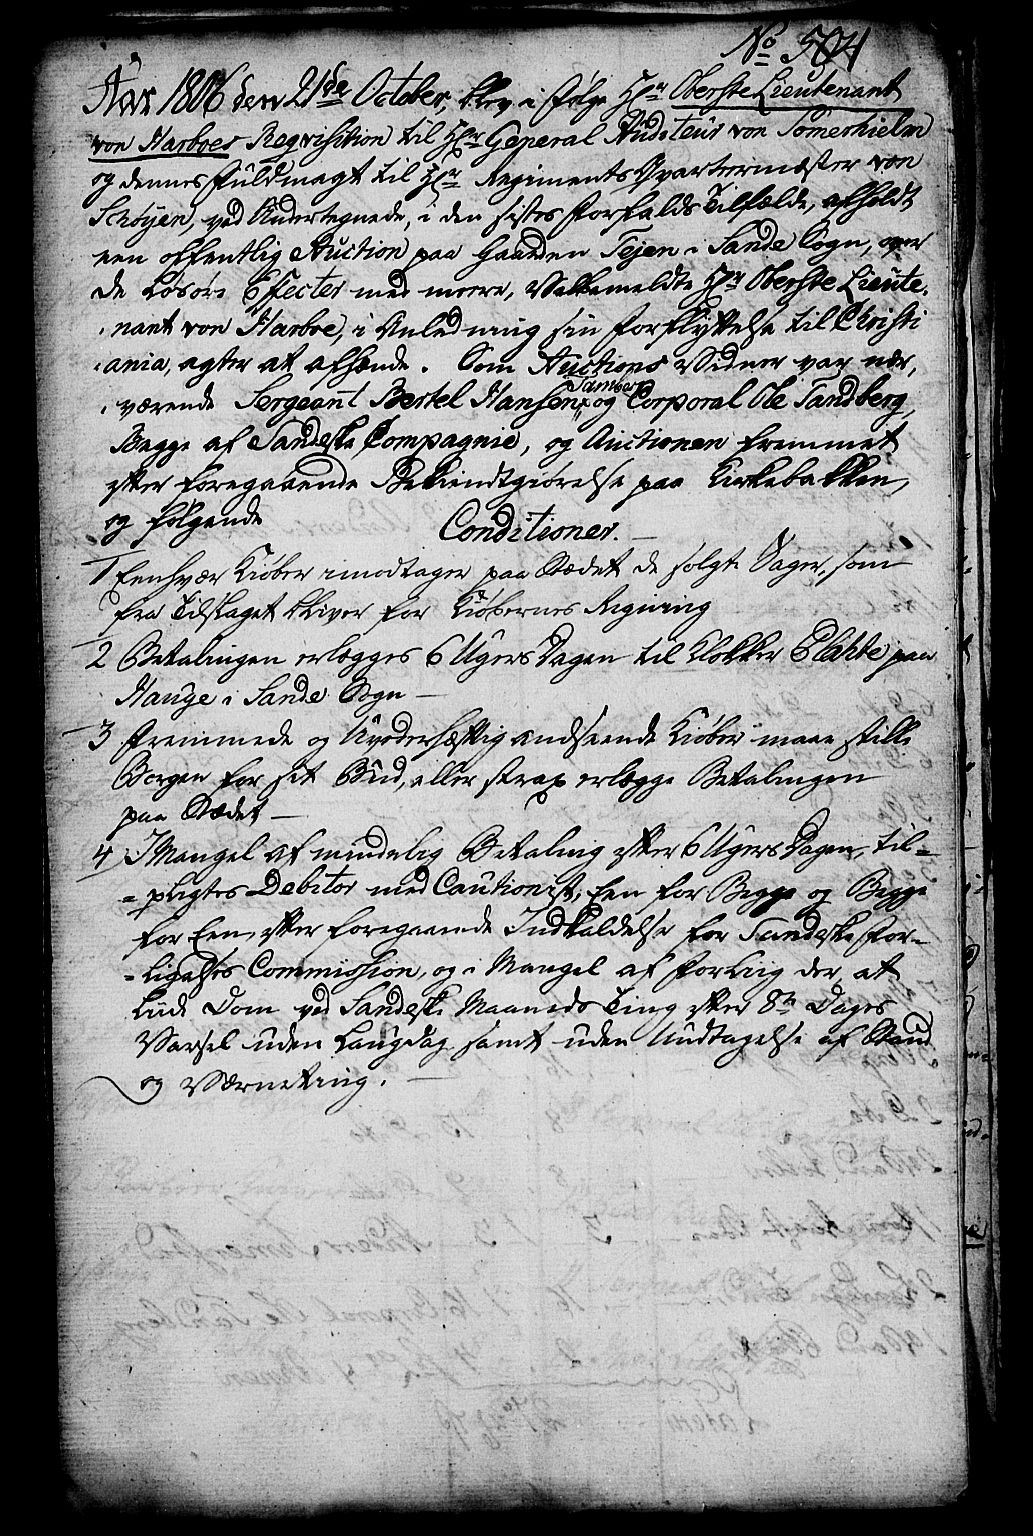 No 584
Aar 1806 den 21de October, blev i følge Hr Oberste Lieutenant
von Harboes Reqvisition til Hr General Auditeur von Sommerhielm
og dennes Fuldmagt til Hr Regiments Qvarteermæster von
Schøyen, ved Undertegnede, i den sistes Forfalds Tilfælde, afholdt
een offentlig Auction paa Gaarden Tejen i Sande Sogn, over
de Løsøre Effecter med meere, Velbemeldte Hr Oberste Lieute-
nant von Harboe, i Anledning sin Forflyttelse til Christi
ania, agter at afhænde. Som Auctions Vidner var nær,
værende Sergeant Bertel Hansen og Corporal Ole Sandberg,
Begge af Sandeske Compagnie, og Auctionen fremmet
efter foregaaende Bekiendtgiørelse paa Kirkebakken,
og følgende Conditioner.
1 Eenhvær Kiøber imodtager paa Stædet de solgte Vager, som
fra Tilslaget bliver for Kiøbernes Regning
2 Betalingen erlægges 6 Ugers Dagen til Klokker Plahte paa
Hauge i Sande Sogn
3 Fremmede og Uvederhæftig andseende Kiøber maae stille
Borgen for sit Bud, eller strax erlægge Betalingen
paa Stædet
4 I Mangel af mindelig Betaling efter 6 Ugers Dagen, til-
pligtes Debitor med Cautionist, Een for Begge og Begge
for Een, efter foregaaende Indkaldelse for Sandeske For-
ligelses Commission, og i Mangel af Forliig der, at
liide Dom ved Sandeske Maaneds Ting efter 8te Dages
Varsel uden Laugdag samt uden Undtagelse af Stand
og Værneting.